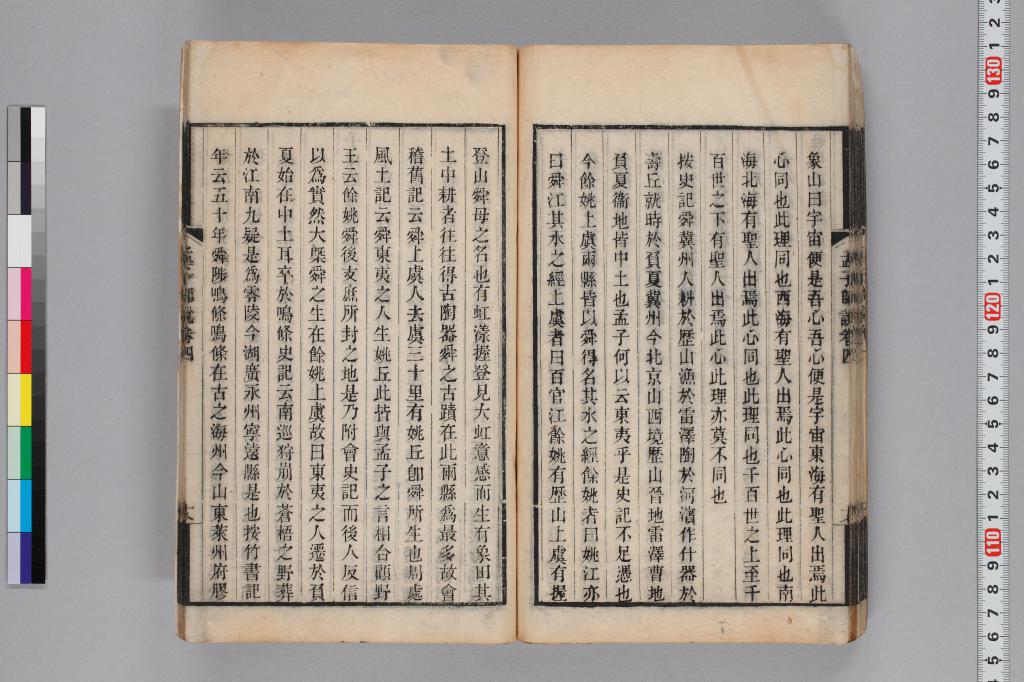 象山曰宇宙便是吾心吾心便是宇宙東海有聖人出焉此
心同也此理同也西海有聖人出焉此心同也此理同也南
海北海有聖人出焉此心同也此理同也千百世之上至千
百世之下有聖人出焉此心此理亦莫不同也
按史記舜冀州人耕於歷山漁於雷澤陶於河濱作什器於
壽丘就時於負夏冀州今北京山西境歷山晉地雷澤曹地
負夏衞地皆中土也孟子何以云東夷乎是史記不足憑也
今餘姚上虞兩縣皆以舜得名其水之經餘姚者曰姚江亦
曰舜江其水之經上虞者曰百官江餘姚有歷山上虞有握
登山舜母之名也有虹漾握登見大虹意感而生有象田其
土中耕者往往得古陶器舜之古蹟在此兩縣爲最多故會
稽舊記云舜上虞人去虞三十里有姚丘卽舜所生也周處
風土記云舜東夷之人生姚丘此皆與孟子之言相合顧野
王云餘姚舜後支庶所封之地是乃附會史記而後人反信
以爲實然大槩舜之生在餘姚上虞故曰東夷之人遷於負
夏始在中土耳卒於鳴條史記云南巡狩崩於蒼梧之野葬
於江南九疑是爲零陵今湖廣永州寧遠縣是也按竹書記
年云五十年舜陟鳴條鳴條在古之海州今山東萊州府膠
孟子師說卷四